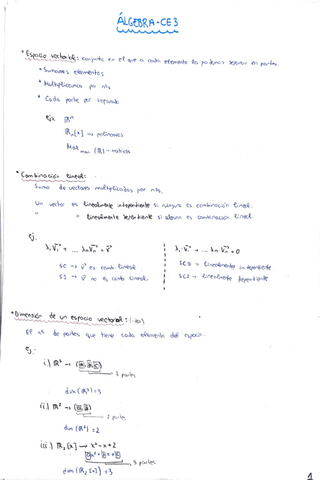 ÁLGEBRA-CE3
• Espacio vectorial: conjunto en el que a cada elemento lo podemos separar en partes
• Sumamos elementos
• Multiplicamos por nºs
• Cada parte por separado
ej: ℝⁿ
ℝₙ[x] → polinomios
Mat (ℝ) → matrices
• Combinación lineal:
Suma de vectores multiplicados por nºs.
Un vector es linealmente independiente si ninguno es combinación lineal.
" " linealmente dependiente si alguno es combinación lineal.
ej.
λ₁·v₁ + ... λₙvₙ = v
SC → v es comb lineal
SI → v no es comb lineal
λ₁·v₁ + ... λₙ·vₙ = 0
SCD → linealmente independiente
SCI → linealmente dependiente
• Dimensión de un espacio vectorial:
El nº de partes que tiene cada elemento del espacio.
ej:
i) ℝ³ →
3 partes
dim (ℝ³) = 3
ii) ℝ² →
2 partes
dim (ℝ²) = 2
iii) ℝ₂[x] → x² - x + 2
3 partes
dim (ℝ₂[x]) = 3
1